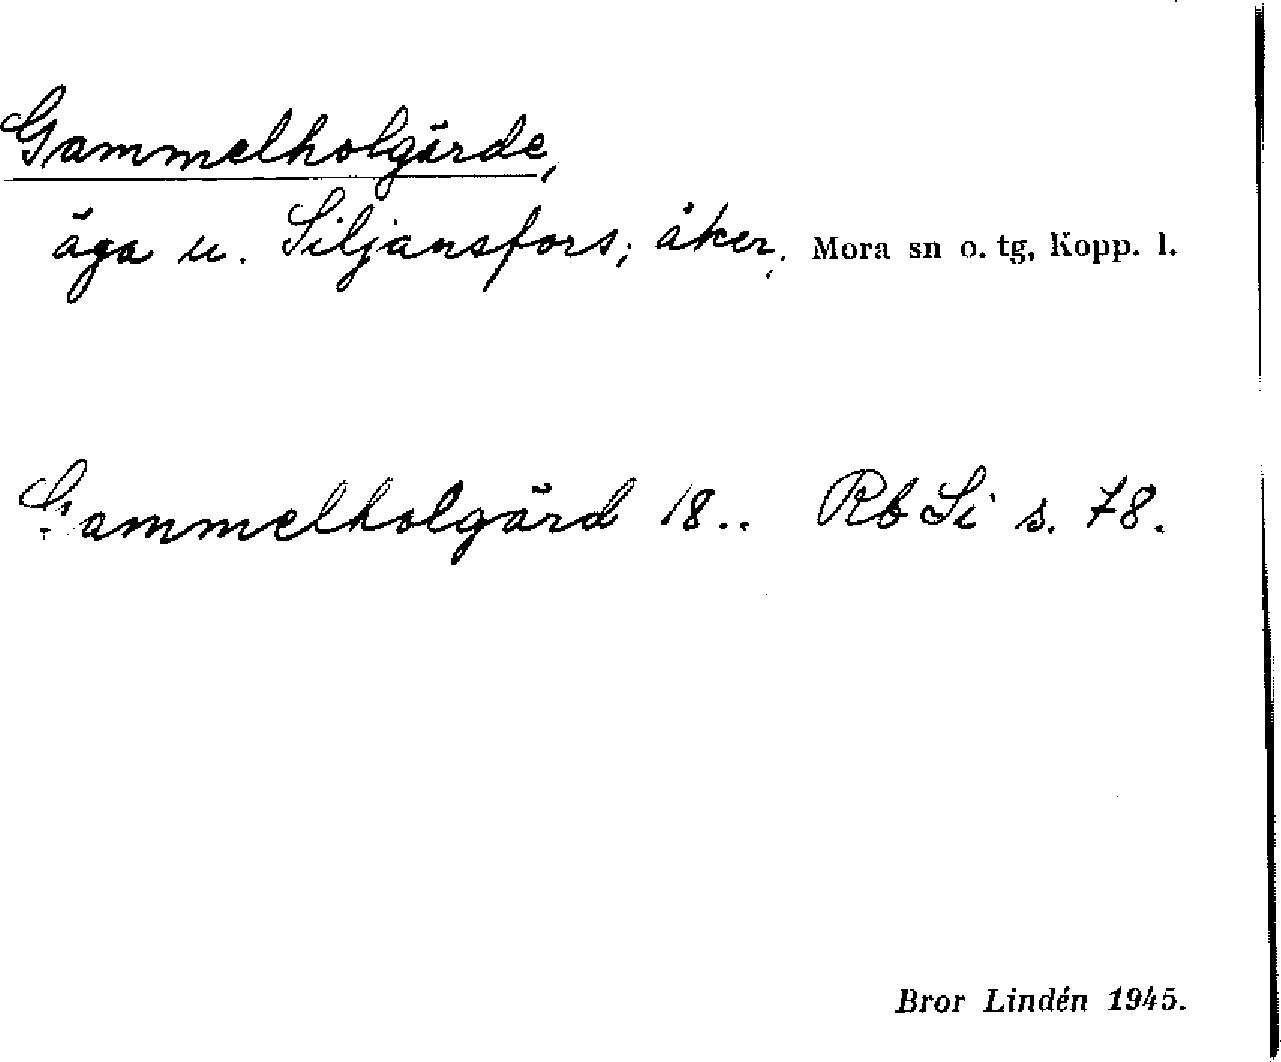 Gammelholgärde,
äga u. Siljansfors; åker, Mora sn o. tg, Kopp. l.
Gammelholgärd 18.. Rb Si s. 78.
Bror Lindén 1945.